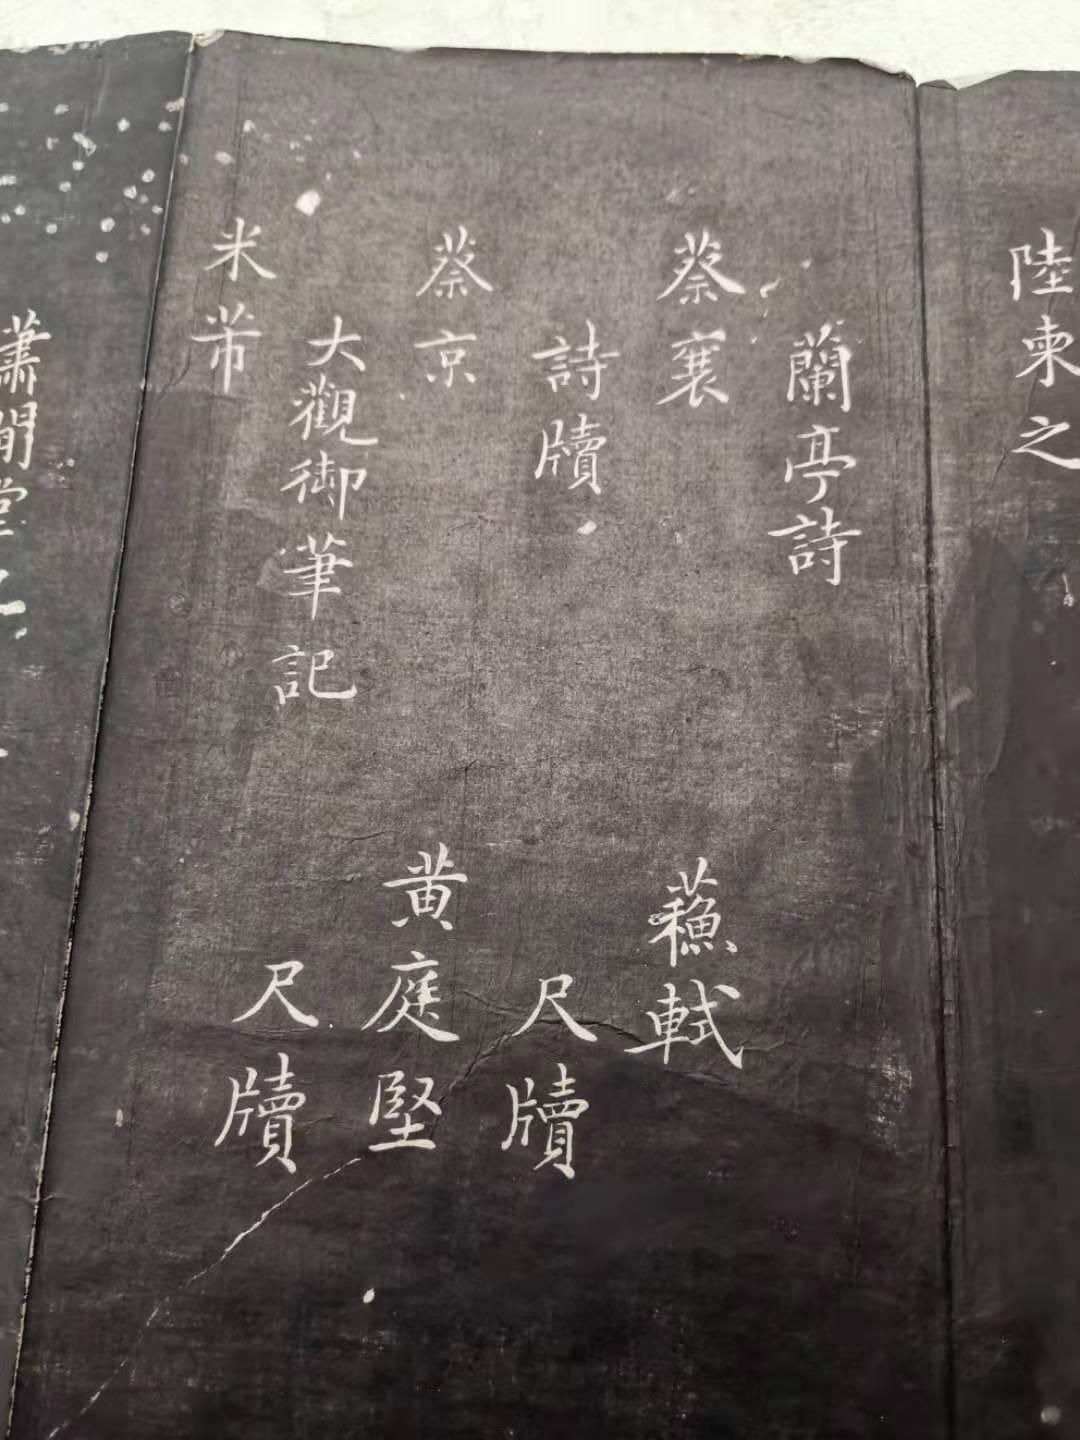 陸柬之
蘭亭詩
蔡襄
蘓軾
詩牘
尺牘
蔡京
黄庭堅
大觀御筆記
尺牘
米芾
蕭閒堂